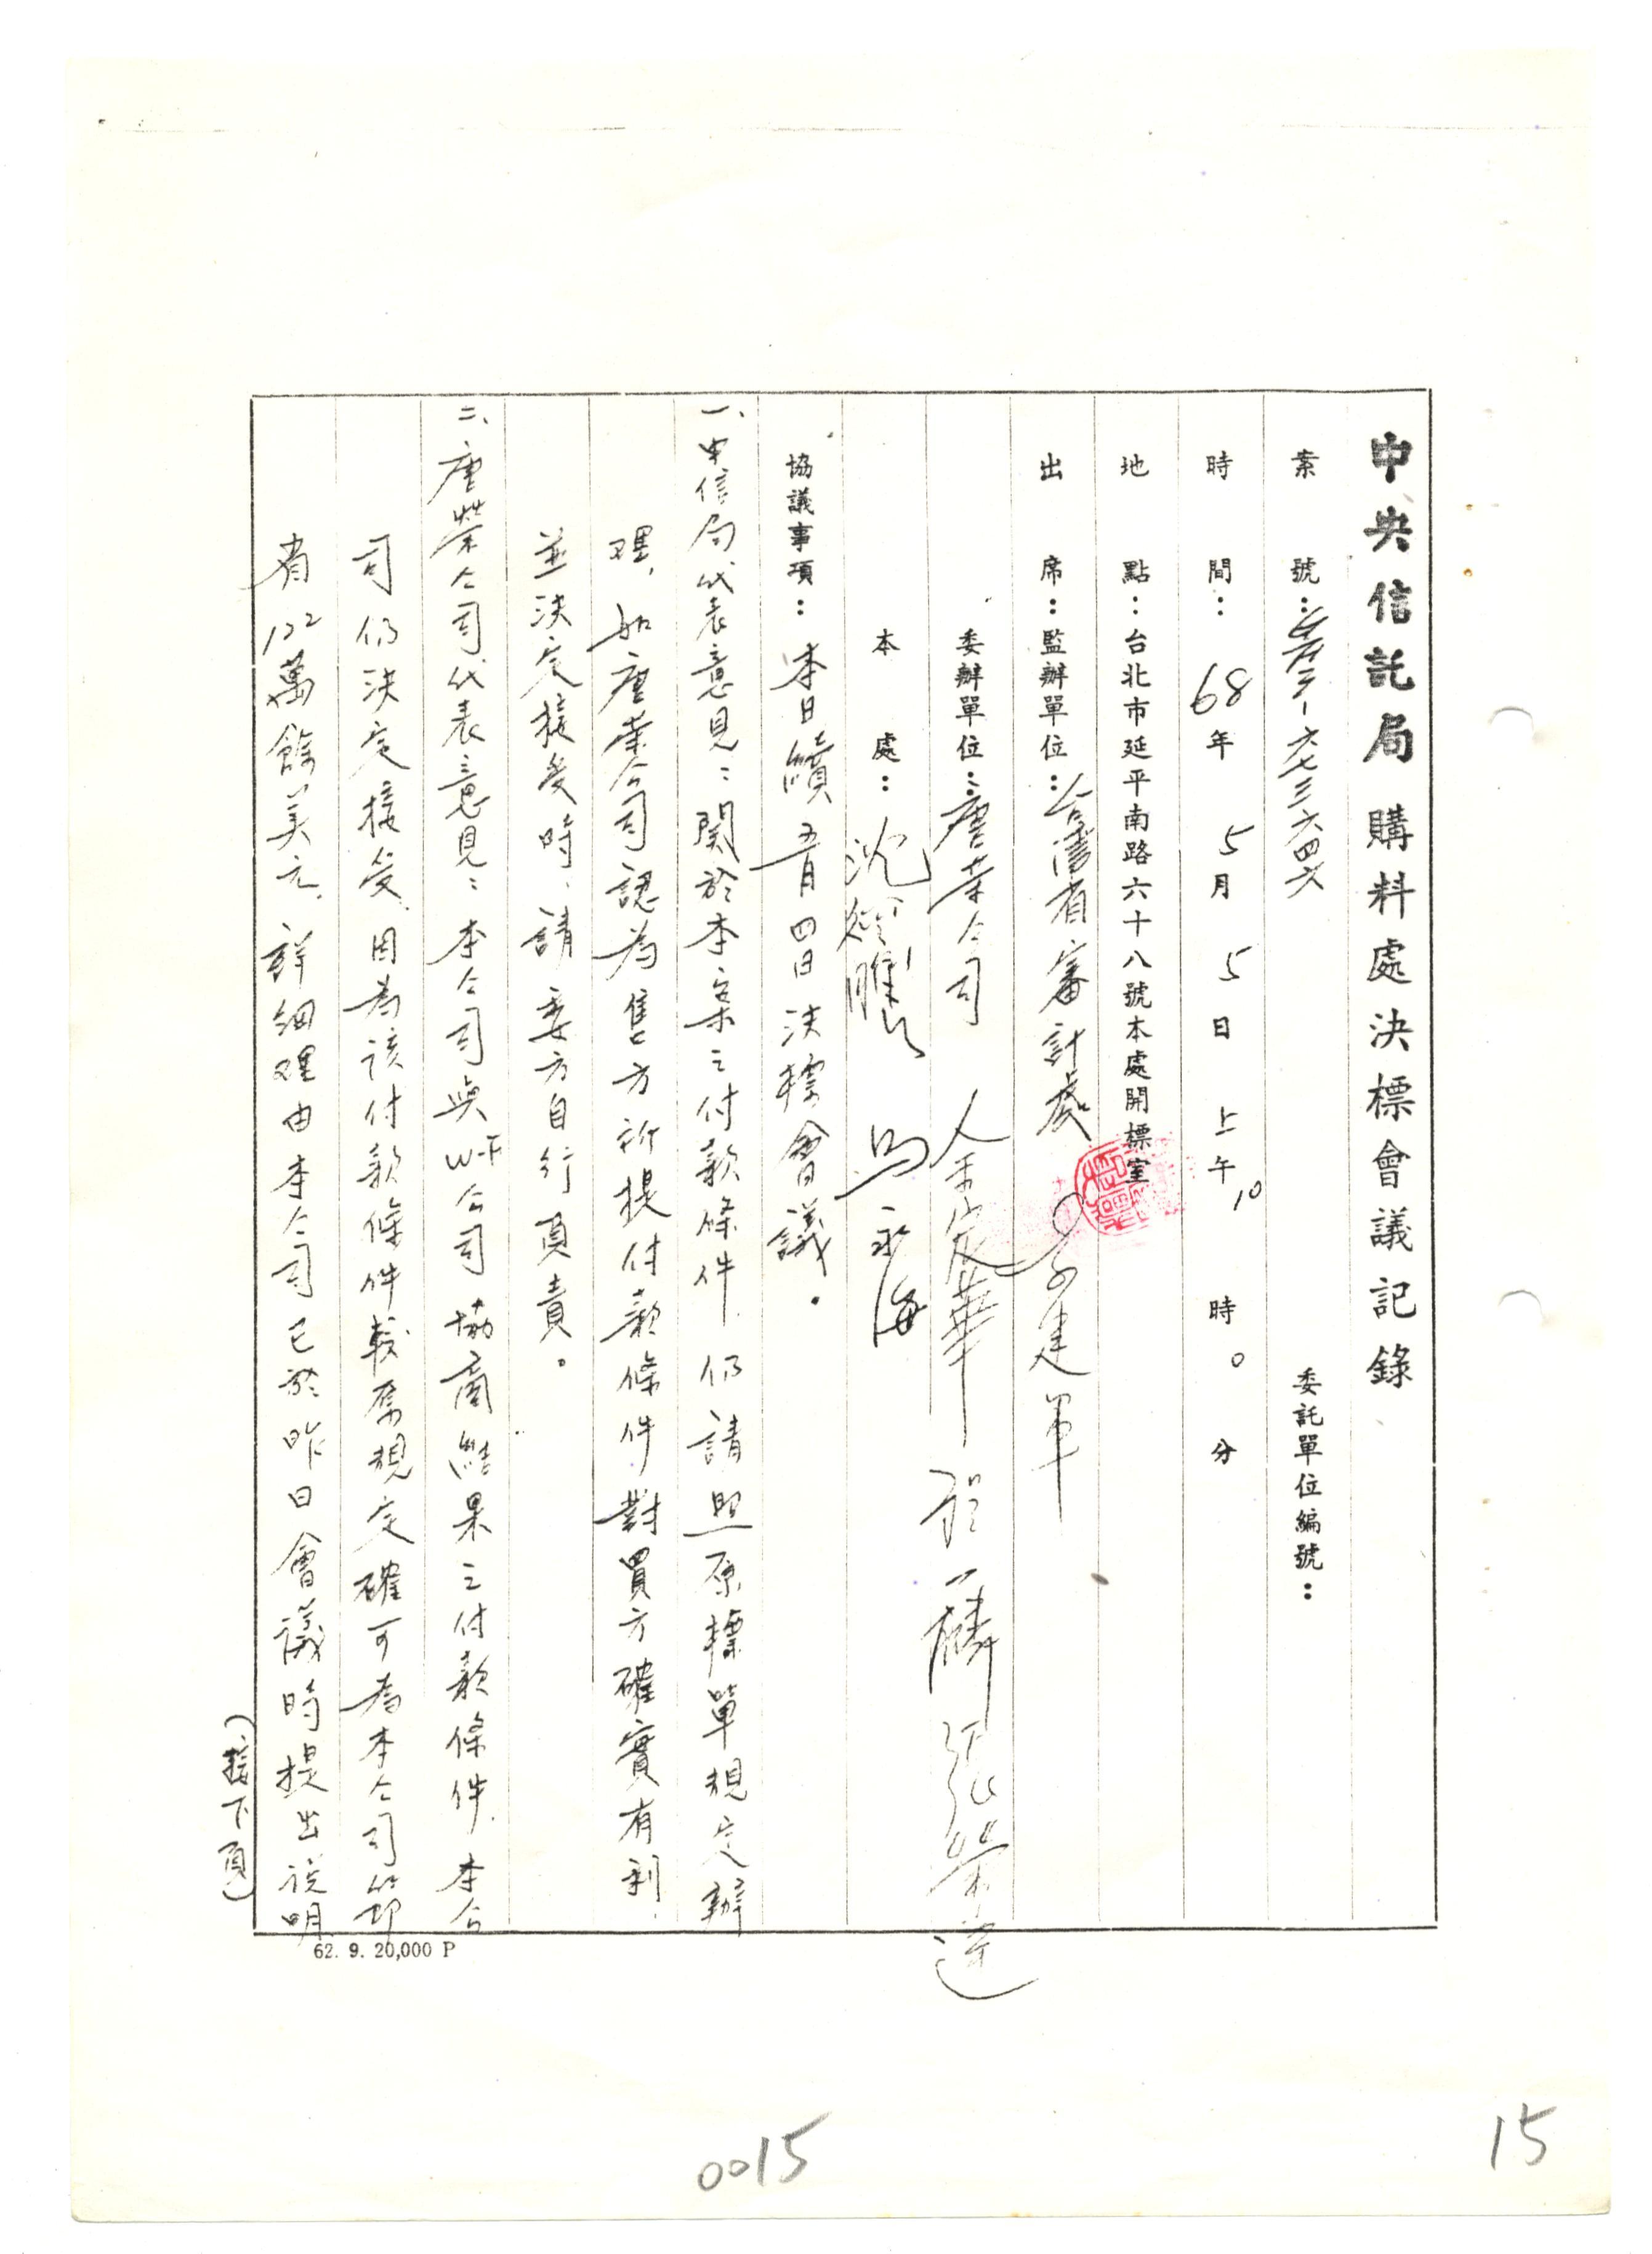 中央信託局購料處決標會議記錄
案號：　－六七三六四六　委託單位編號：
時間：68年5月5日上午10時0分
地點：台北市延平南路六十八號本處開標室
出席：監辦單位：台灣省審計處　建軍
委辦單位：唐榮公司　華　麟　張榮達
本處：沈　馮永海
協議事項：本日續五月四日決標會議。
一、中信局代表意見：関於本案之付款條件，仍請照原標單規定辦
理，如唐榮公司認為售方所提付款條件對買方確實有利，
並決定接受時，請委方自行負責。
二、唐榮公司代表意見：本公司與W-F公司協商結果之付款條件，本公
司仍決定接受，因為該付款條件較原規定確可為本公司節
省122萬餘美元，詳細理由本公司已於昨日會議時提出說明
（接下頁）
62. 9. 20,000 P
0015
15